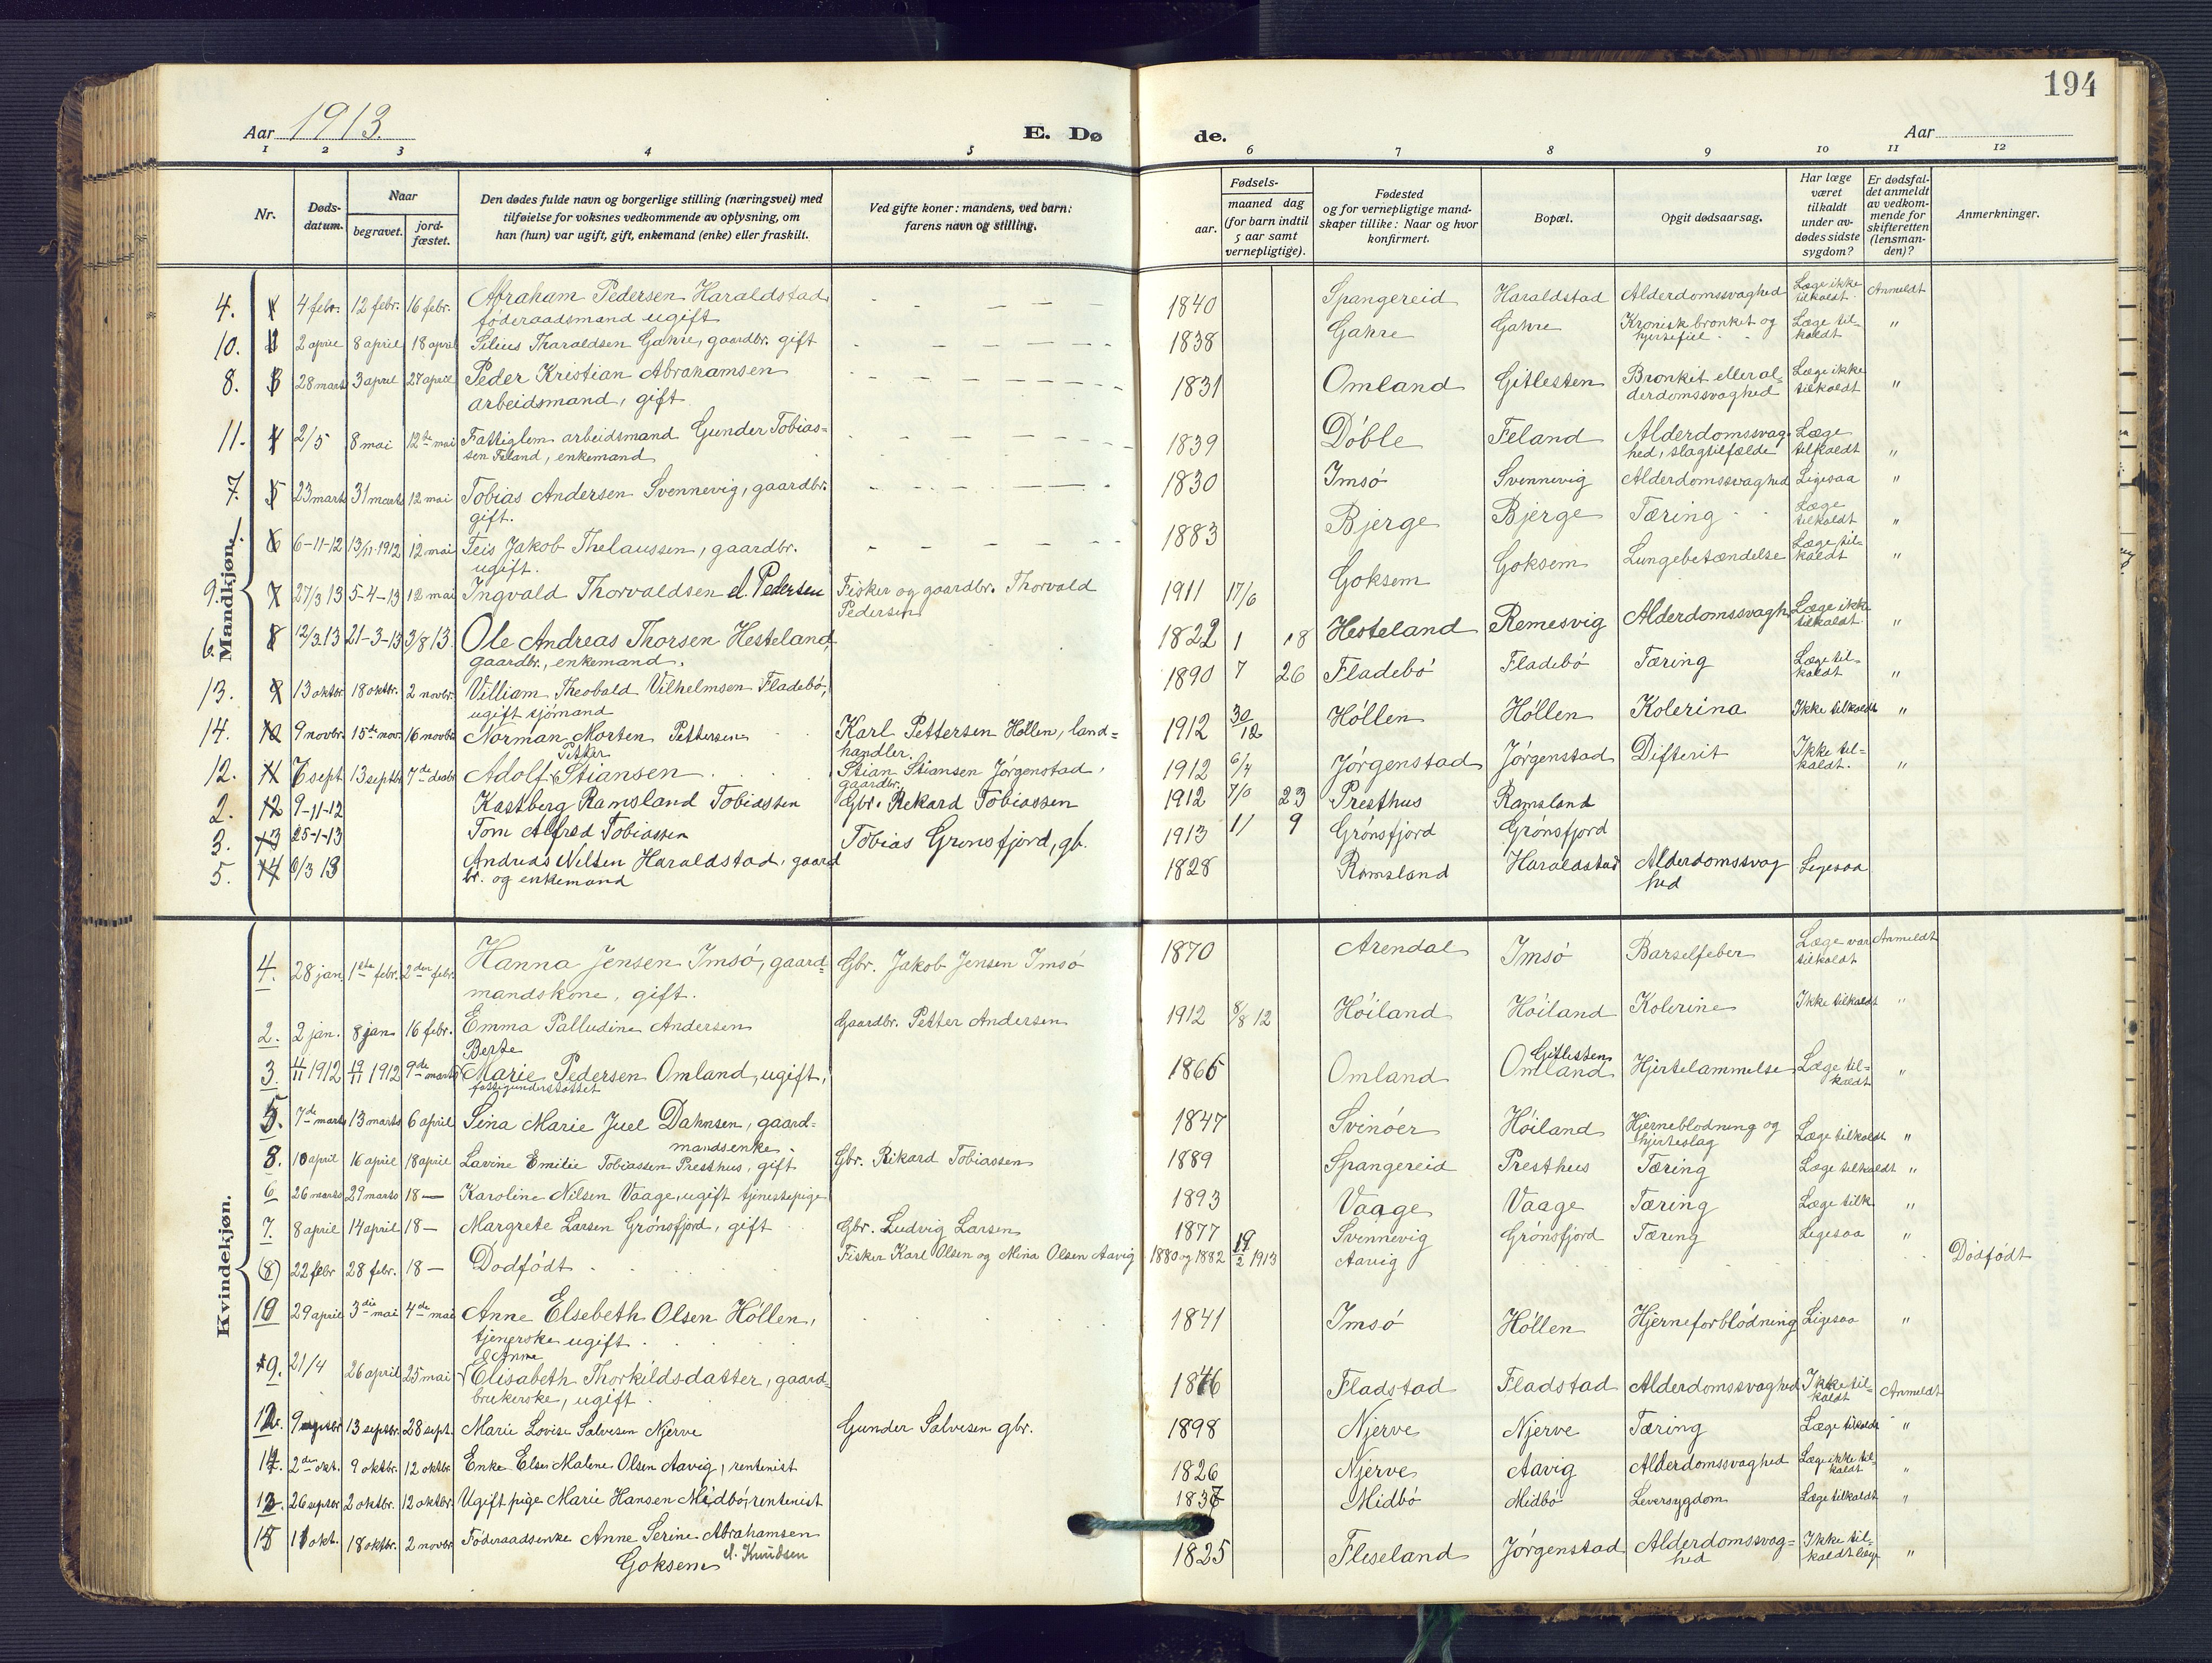 194
Aar 1913.
E. Dø
de.
Aar
1 2 3 4 5 6 7 8 9 10 11 12
Nr.
Døds-
datum.
Naar
begravet.
jord-
fæstet.
Den dødes fulde navn og borgerlige stilling (næringsvei) med
tilføielse for voksnes vedkommende av oplysning, om
han (hun) var ugift, gift, enkemand (enke) eller fraskilt.
Ved gifte koner: mandens, ved barn:
farens navn og stilling.
Fødsels-
aar.
maaned dag
(for barn indtil
5 aar samt
vernepligtige).
Fødested
og for vernepligtige mand-
skaper tillike: Naar og hvor
konfirmert.
Bopæl.
Opgit dødsaarsag.
Har læge
været
tilkaldt
under av-
dødes sidste
sygdom?
Er dødsfal-
det anmeldt
av vedkom-
mende for
skifteretten
(lensman-
den)?
Anmerkninger.
Mandkjøn.
4. 1 4 febr. 12 febr. 16 febr. Abraham Pedersen Haraldstad - - - - - 1840 Spangereid Haraldstad Alderdomssvaghed Læge ikke Anmeldt
føderaadsmand ugift tilkaldt.
10. 2 april 8 april 18 april Silius Tharaldsen Gahre, gaardbr. gift 1838 Gahre Gahre Kronisk bronkit og Læge til- "
hjertefeil kaldt
8. 3 28 marts 3 april 27 april Peder Kristian Abrahamsen 1831 Omland Gitlesten Bronkit eller al- Læge ikke "
arbeidsmand, gift derdomssvaghed tilkaldt
11. 4 2/5 8 mai 12te mai Fattiglem arbeidsmand Gunder Tobias= 1839 Døble Feland Alderdomssvag- Læge "
sen Feland, enkemand hed, slagtilfælde tilkaldt
7. 5 23 marts 31 marts 12 mai Tobias Andersen Svennevig, gaardbr. 1830 Imsø Svennevig Alderdomssvaghed Ligesaa "
gift.
1. 6 6-11-12 13/11-1912 12 mai Teis Jakob Thelaussen, gaardbr. 1883 Bjerge Bjerge Tæring Læge "
ugift. tilkaldt
9. 7 27/3 13 5-4-13 12 mai Ingvald Thorvaldsen el. Pedersen Fisker og gaardbr. Thorvald 1911 17/6 Goksem Goksem Lungebetændelse Læge til- "
Pedersen kaldt
6. 8 12/3.13 21-3-13 3/8 13. Ole Andreas Thorsen Hesteland, 1822 1 18 Hesteland Remesvig Alderdomssvagh Læge ikke "
gaardbr., enkemand. tilkaldt.
13. 9 13 oktbr. 18 oktbr. 2 novbr. Villiam Theobald Vilhelmsen Fladebø, 1890 7 26 Fladebø Fladebø Tæring Læge til- "
ugift sjømand kaldt
14. 10 9 novbr. 15de nov. 16 novbr Norman Morten Pettersen Karl Pettersen Høllen, land= 1912 30/12 Høllen Høllen Kolerina Ikke tilkaldt "
handler.
Petter
12. 11 7 sept 13 septbr 7de decbr Adolf Stiansen Stian Stiansen Jørgenstad, 1912 6/4 Jørgenstad Jørgenstad Difterit Ikke til= "
gaardbr. kaldt.
2. 12 9-11-12 Kastberg Ramsland Tobiassen Gbr. Rekard Tobiassen 1912 23 Presthus Ramsland
3. 13 25-1-13 Tom Alfred Tobiassen Tobias Grønsfjord, gb. 1913 11 9 Grønsfjord Grønsfjord
5. 14 6/3 13 Andreas Nilsen Haraldstad, gaard 1828 Ramsland Haraldstad Alderdomssvag Ligesaa
br. og enkemand hed
Kvindekjøn.
4. 28 jan. 1ste febr. 2den febr. Hanna Jensen Imsø, gaard= Gbr. Jakob Jensen Imsø 1870 Arendal Imsø Barselfeber Læge var Anmeldt
mandskone, gift. tilkaldt
2. 2 jan. 8 jan 16 febr. Emma Palludine Andersen Gaardbr. Petter Andersen 1912 8/8 12 Høiland Høiland Kolerine Ikke tilkaldt "
Berte Gitlesten
3. 11/11 1912 19/11 1912 9de marts Marie Pedersen Omland, ugift, 1866 Omland Omland Hjertelammelse Læge til= "
fattigunderstøttet kaldt
5. 7de marts 13 marts 6 april Sina Marie Juel Dahnsen, gaard= 1847 Svinøer Høiland Hjerneblødning og Læge tilkaldt "
mandsenke. hjerteslag
8. 10 april 16 april 18 april Lavine Emilie Tobiassen Presthus, gift Gbr. Rikard Tobiassen 1889 Spangereid Presthus Tæring Læge tilkaldt "
6 26 marts 29 marts 18 — Karoline Nilsen Vaage, ugift tjenestepige 1893 Vaage Vaage Tæring Læge tilk "
7. 8 april 14 april 18 — Margrete Larsen Grønsfjord, gift Gbr. Ludvig Larsen 1877 Svennevig Grønsfjord Tæring Ligesaa "
(8) 22 febr 28 febr. 18 — Dødfødt Fisker Karl Olsen og Mina Olsen Aavig 1880 og 1882 19/2 1913 Aavig Dødfødt
10 29 april 3die mai 4de mai Anne Elsebeth Olsen Høllen, 1841 Imsø Høllen Hjerneforblødning Ligesaa "
tjenerske ugift.
Anne
9. 21/4 26 april 25 mai Elisabeth Thorkildsdatter, gaard= 1846 Fladstad Fladstad Alderdomssvaghed Ikke til= Anmeldt
brukerske, ugift kaldt
12. 9 13 septbr. 28 sept. Marie Lovise Salvesen Njerve Gunder Salvesen gbr. 1898 Njerve Njerve Tæring Læge tilkaldt "
14. 2den okt. 9 oktbr. 12 oktbr Enke Else Malene Olsen Aavig, rentenist 1826 Njerve Aavig Alderdomssvaghed Læge ikke til= "
kaldt
13. 26 septbr 2 oktbr. 12 oktbr. Ugift pige Marie Hansen Midbø, rentenist 1837 Midbø Midbø Leversygdom Læge tilkaldt "
15 11 okt. 18 oktbr. 2 novbr Føderaadsenke Anne Serine Abrahamsen 1825 Fleseland Jørgenstad Alderdomssvag= Ikke til= "
Goksem el. Knudsen hed kaldt læge